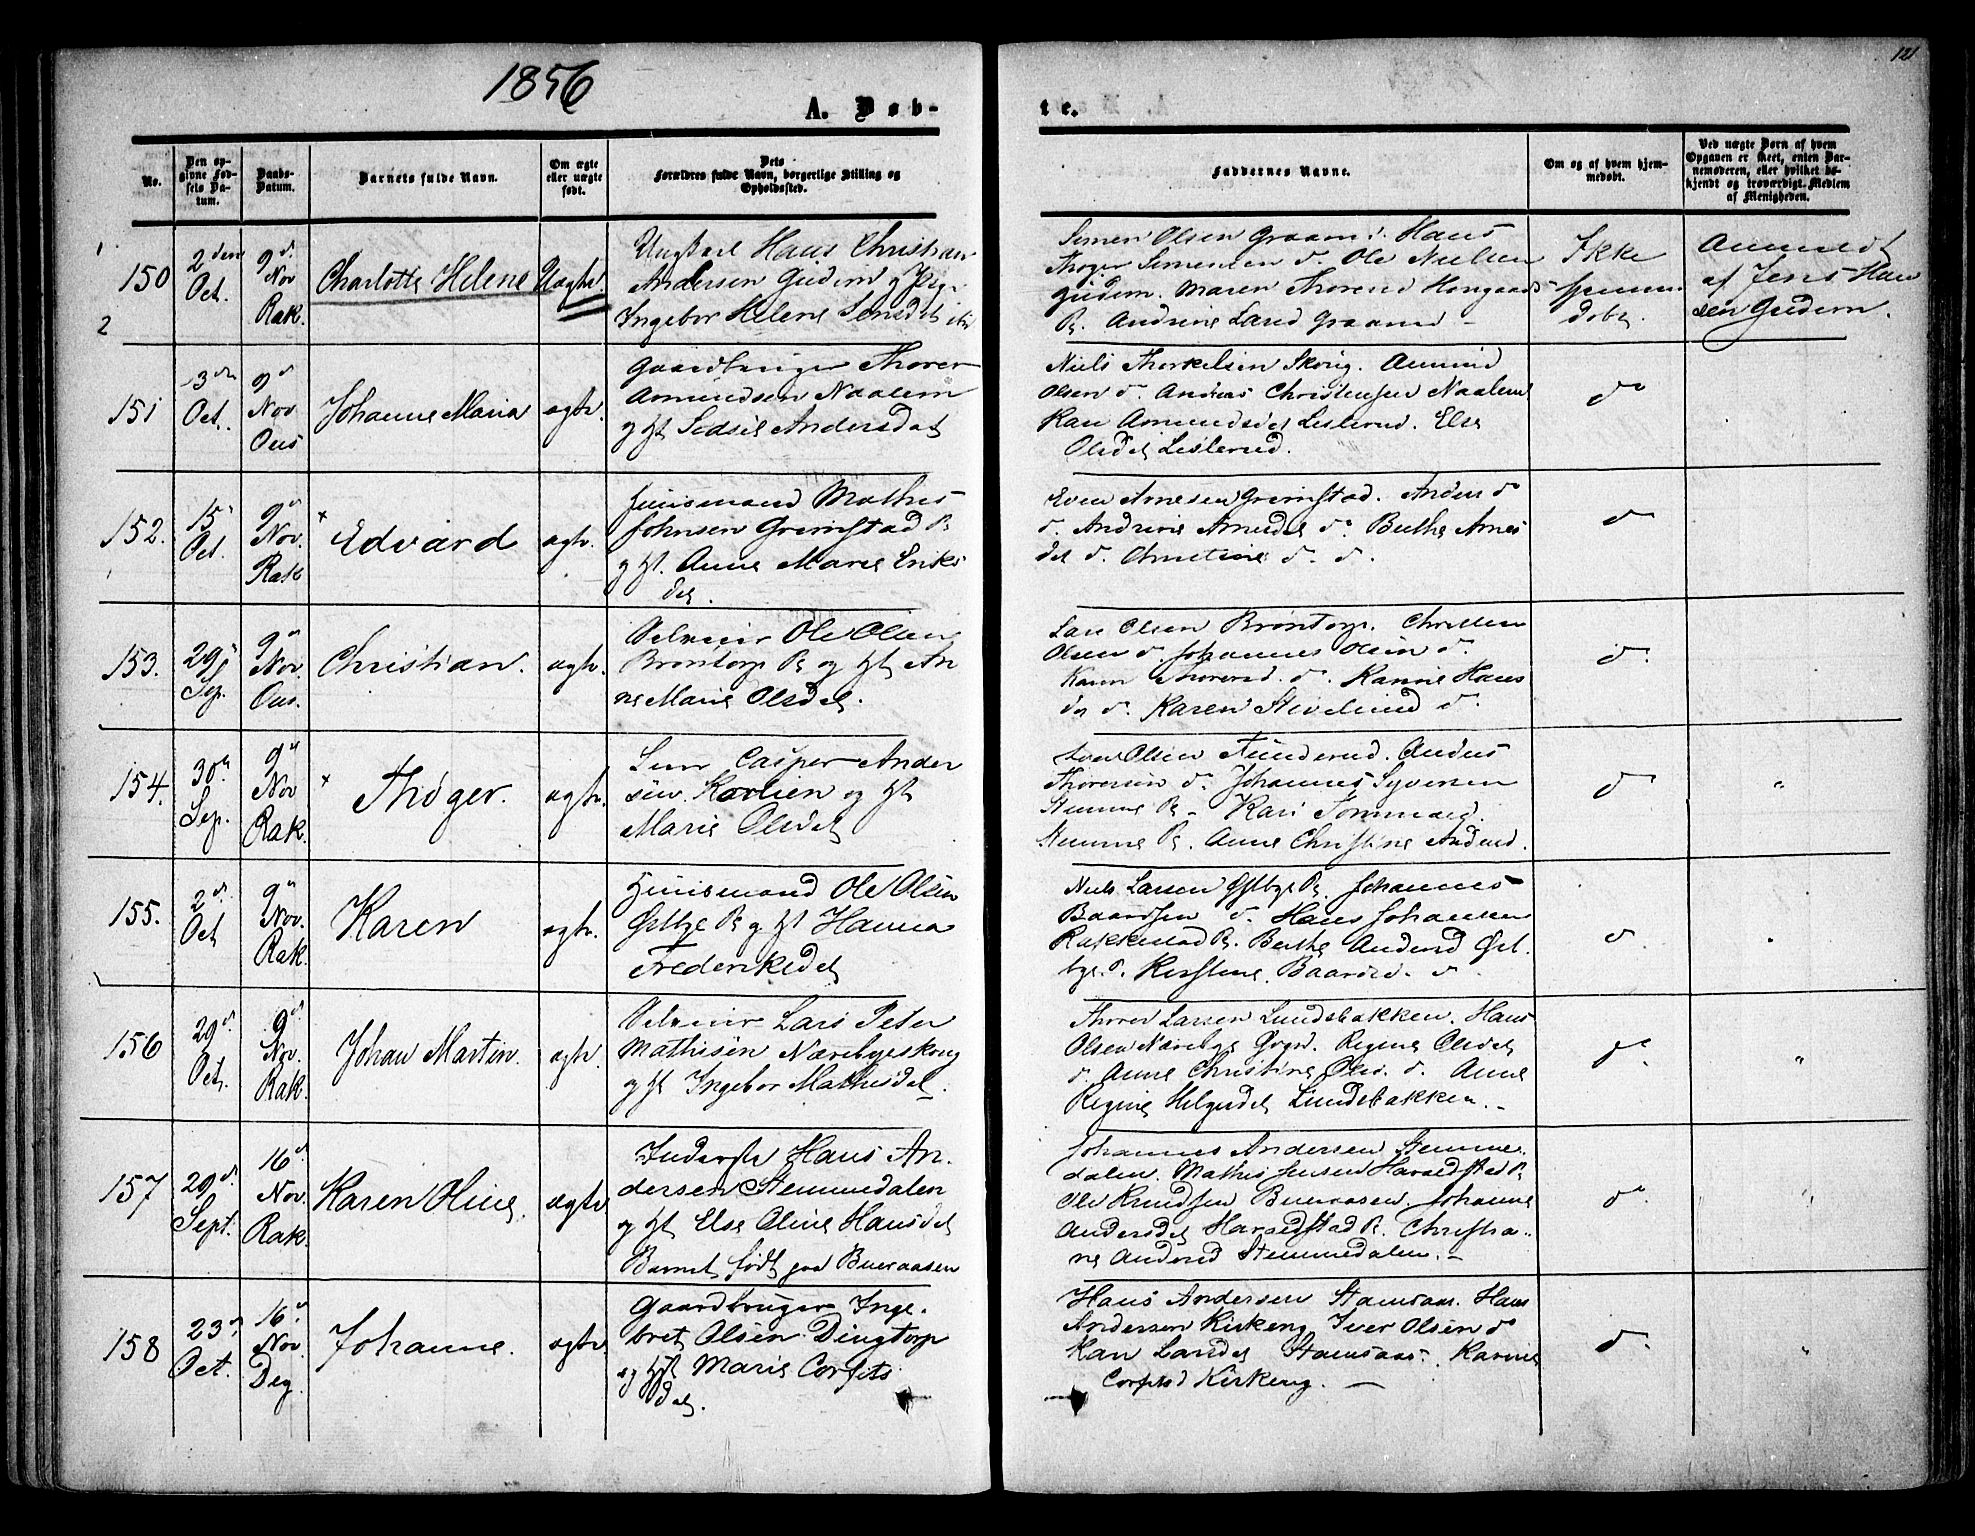 1856
121
A. Døb-
te.
No.
Den op-
givne Fød-
sels Da-
tum.
Daabs-
Datum.
Barnets fulde Navn.
Om ægte
eller uægte
født.
Dets
Forældres fulde Navn, borgerlige Stilling og
Opholdssted.
Faddernes Navne.
Om og af hvem hjem-
medøbt.
Ved uægte Børn af hvem
Opgaven er skeet, enten Bar-
nemoderen, eller hvilket be-
kjendt og troværdigt Medlem
af Menigheden.
1
2
150
2den
Oct.
9d
Nov
Rak.
Charlotte Helene
Uægte.
Ungkarl Hans Christian
Andersen Gudem og Pige
Ingebor Helene Jensdat
Simen Olsen Graam. Hans
Thøger Simensen d. Ole Nielsen
Gudem. Maren Thoresd
R. Andrine Larsd Graam
Ikke
hjemme
døbt.
Anmeldt
af Jens Han
sen Gudem.
151
3die
Oct.
9d
Nov
Ous
Johanne Maria
ægte.
Gaardbruger Thorer
Amundsen Naalem
og Hst Andersdat
Niels Thorkelsen Skorig. Amund
Olsen d. Andreas Christensen Naalem
Kari Amundsdat Lislerud. Else
Olsdat Lislerud.
do
152.
15
Oct.
9d
Nov.
Rak
Edvard
ægte.
Huusmand Mathis
Johnsen Grimstad R
og Hst. Anne Marie Eriks
dat.
Even Arnesen Grimstad. Anders d
d. Andrine Arnesdat do Berthe Arnes
dat d. Christine d. d.
do
153.
29
Sep.
9d
Nov.
Ous.
Christian.
ægte.
Selveier Ole Olsen
Brøntorp R og Hst An
ne Marie Olsdat.
Lars Olsen Brøntorp. Christen
Olsen d. Johannes Olsen d.
Karen Thoresd. d. Karine Hans
dat d. Karen d.
d.
154.
30
Sep.
9d
Nov
Rak.
Thøger.
ægte.
Casper Ander
sen. Korlien og Hst
Marie Olsdat
Olsen Funderud. Anders
Thoresen d. Johannes Syversen
Stemme R. Kari
Stemme R. Anne Christine Andersd.
d
"
155.
2d
Oct
9d
Nov.
Rak.
Karen
ægte.
Huusmand Ole Olsen
Østbye R og Hst Hanna
Frederikedat
Niels Larsen Østbye R. Johannes
Baardsen d. Hans Johannsen
Rakkestad R. Berthe Andersd Øst
bye. d. Kirstine Baardsd. d
d.
156
29d
Oct.
9d
Nov.
Rak.
Johan Martin.
ægte.
Selveier Lars Peter
Mathisen Nærebyeskoug
og Hst Ingebor Mathisdat.
Thorer Larsen Lundebakken. Hans
Olsen Nærebye Regine Olsdat
d. Anne Christine Olsd. d. Anne
Regine Helgesdat Lundebakken.
do.
"
157
29d
Sept.
16d
Nov.
Rak.
Karen Oline.
ægte
Inderste Hans An-
dersen Stemmedalen
og Hst Else Oline Hansdat
Barnet født paa Bueraasen
Johannes Andersen Stemme-
dalen. Mathis Jensen Haraldstad R
Ole Knudsen Bueraasen. Johanne
Andersdat Haraldstad R. Christia-
ne Andersd Stemmedalen.
do.
"
158
23d
Oct.
16d
Nov.
Deg.
Johanne.
ægte
Gaardbruger Inge-
bret Olsen Dingtorp
og Hst Marie Corfits
dat.
Hans Andersen Stamsaas. Hans
Andersen Kirkeng Iver Olsen d
Kari Larsdat Stamsaas. Karine
Corfitsd Kirkeng.
d.
"